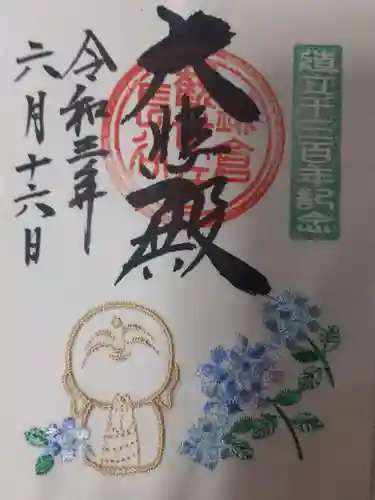 造立千三百年記念
鎌倉
大悲殿
令和三年
六月十六日